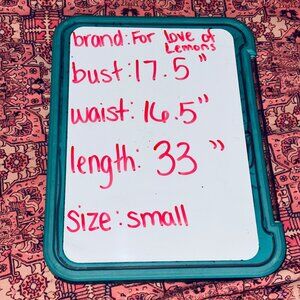 brand: For Love of
Lemons
bust: 17.5"
waist: 16.5"
length: 33"
size: small